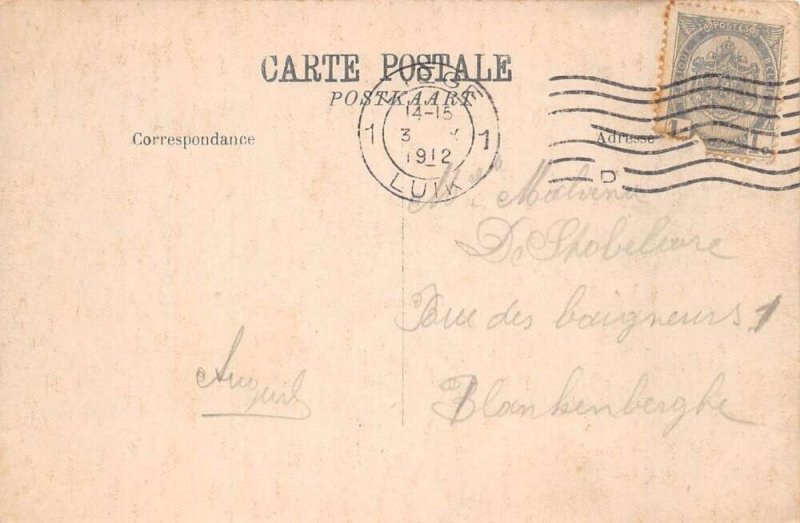 CARTE POSTALE
POSTKAART
Correspondance
Adresse
POSTES
1 1
LIEGE
14-15
1 3 X 1
1912
LUIK
D
Malvina
Rue des baigneurs 1
Blankenberghe